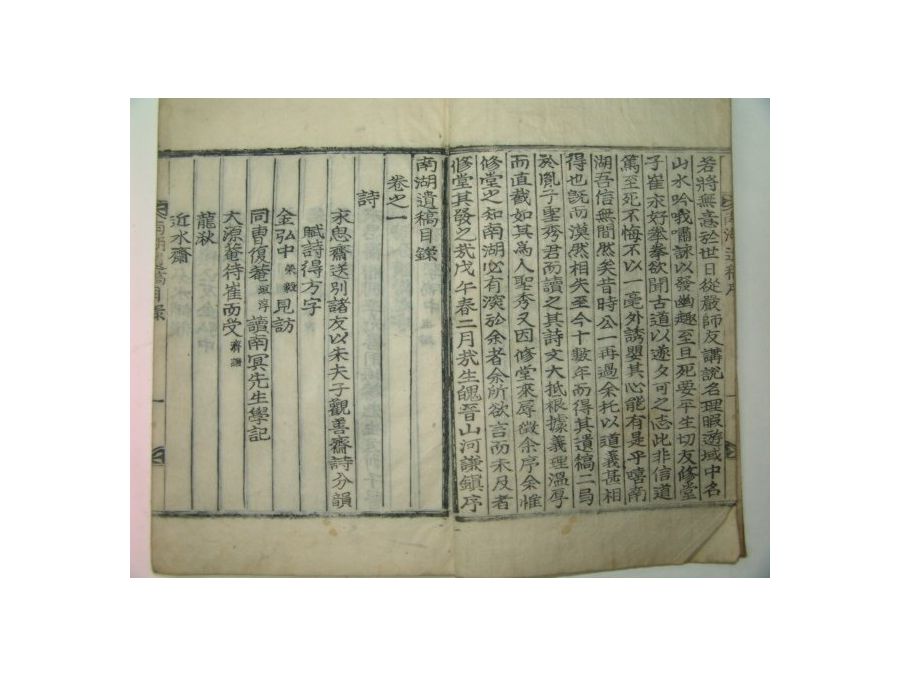 若將無意於世日從嚴師友講說名理暇遊域中名
山水吟哦嘯詠以發幽趣至旦死要平生切友修堂
子崔永好拳拳欲聞古道以遂夕可之志此非信道
篤至死不悔不以一毫外誘嬰其心能有是乎嘻南
湖吾信無間然矣昔時公一再過余托以道義甚相
得也旣而漠然相失至今十數年而得其遺稿二
於胤子聖秀君而讀之其詩文大抵根據義理溫厚
而直截如其爲人聖秀又因修堂來尋徵余序余惟
修堂之知南湖必有演於余者余所欲言而未及者
修堂其發之哉戊午春二月哉生魄晉山河謙鎭序
南湖遺稿目錄
卷之一
詩
求思齋送別諸友以朱夫子觀善齋詩分韻
賦詩得方字
金弘中 榮毅 見訪
同曺復菴 垣淳 讀南冥先生學記
大源菴待崔而受 濟謙
龍湫
近水齋